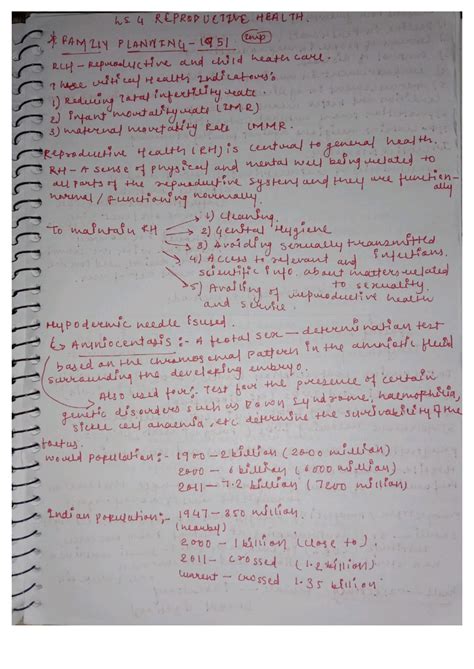 LS 4 REPRODUCTIVE HEALTH.
* FAMILY PLANNING - 1951 (Imp)
RCH - Reproductive and child health care.
Three critical Health Indicators
1) Reducing Total infertility rate.
2) infant mortality rate (IMR)
3) maternal mortality Rate (MMR.
Reproductive Health (RH) is central to general health.
RH - A sense of physical and mental well being related to
all parts of the reproductive system and they are function-
ally
normal / functioning normally.
To maintain RH
1) Cleaning.
2) Genital Hygiene
3) Avoiding sexually transmitted
infections.
4) Access to relevant and
scientific info. about matters related
to sexuality.
5) Availing of reproductive health
and service.
Hypodermic needle is used.
Amniocentesis :- A foetal sex - determination test
based on the chromosomal pattern in the amniotic fluid
surrounding the developing embryo.
Also used for: Test for the presence of certain
genetic disorders such as Down Syndrome, haemophilia,
sickle cell anaemia, etc determine the survivability of the
foetus.
World population :- 1900 - 2 billion (2000 million)
2000 - 6 billion (6000 million)
2011 - 7.2 billion (7200 million)
Indian population :- 1947 - 350 million.
(nearby)
2000 - 1 billion (close to).
2011 - crossed (1.2 billion)
current - crossed 1.35 billion